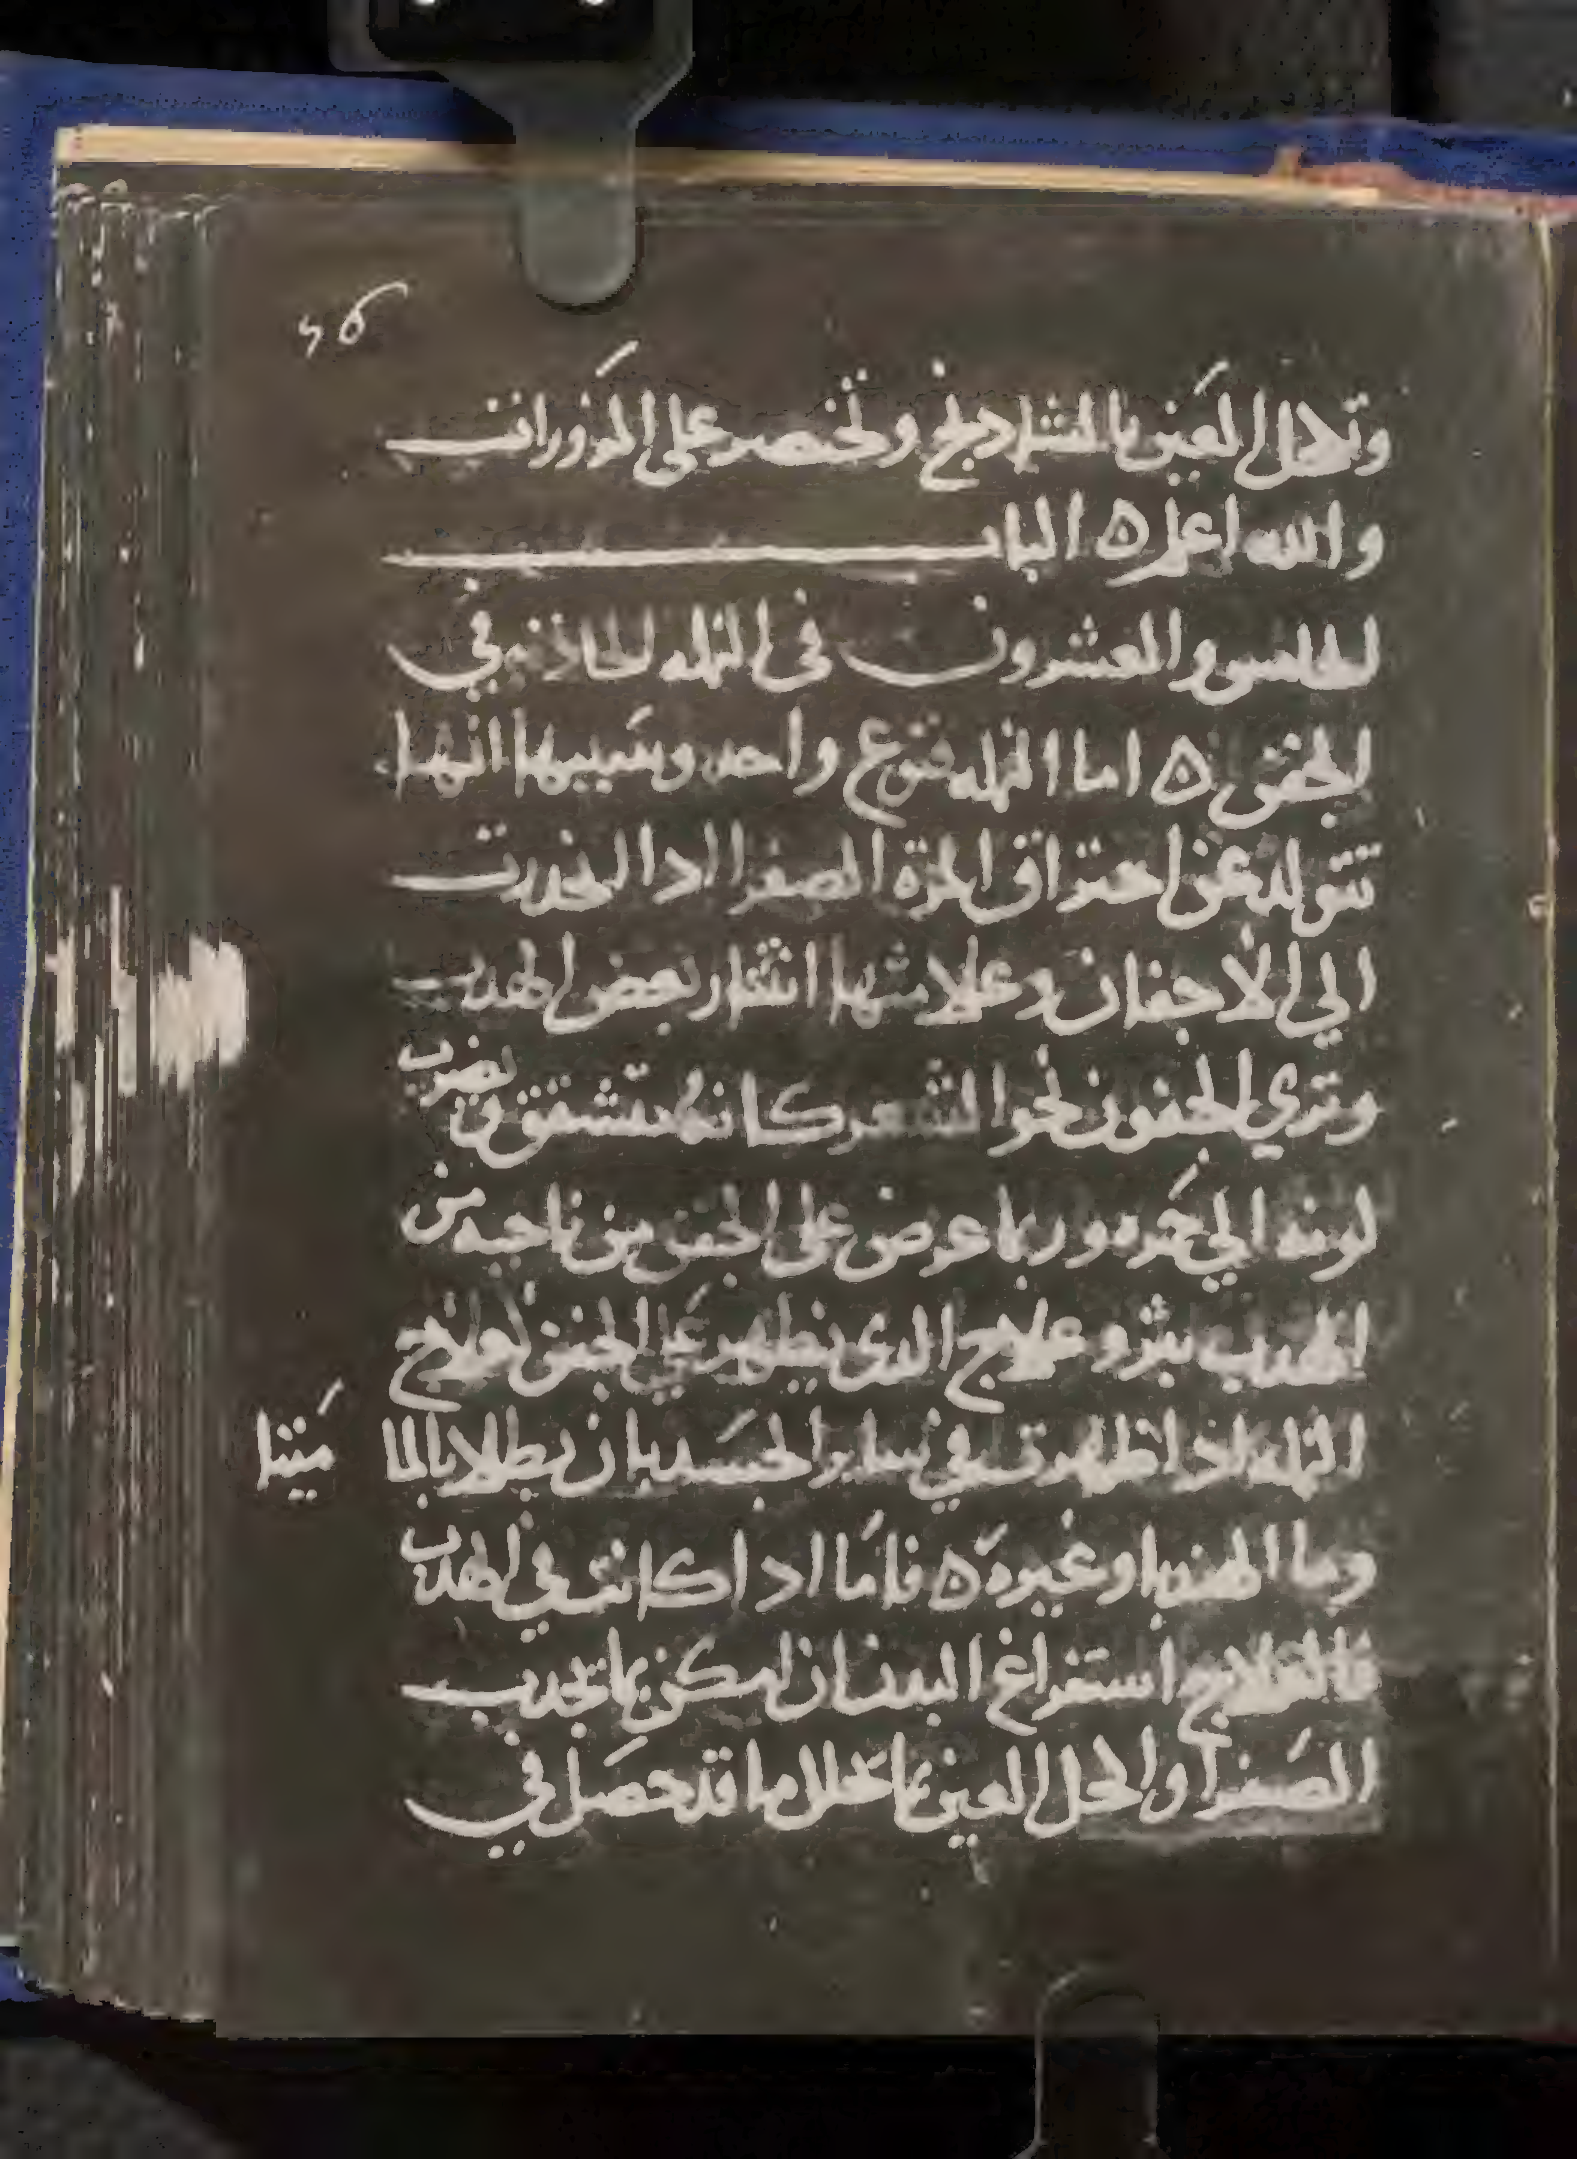 ٤٦
وتكحل العين بالشادنج وتختصر على المزورات
والله اعلم ٥ الباب
الخامس والعشرون في النمله الحادثه في
الجفن ٥ اما النمله فنوع واحد وسببها انها
تتولد عن احتراق المرة الصفرا اذا انحدرت
الي الاجفان وعلامتها انتثار بعض الهدب
وتري الجفون نحو الشعر كانه متشقق يضرب
لونه الي حمره وربما عرض على الجفن من ناحيه من
الهدب بثر وعلاج الدي يظهر علي الجفن لعلاج
النمله اذا ظهرت في ساير الجسد بان يطلا بالما
ميثا
وما الهندبا وغيره ٥ فاما ادا كانت في الهدب
فالعلاج استفراغ البدن ان امكن بما يجدب
الصفرا واكحل العين بما يحلل ما قد حصل في